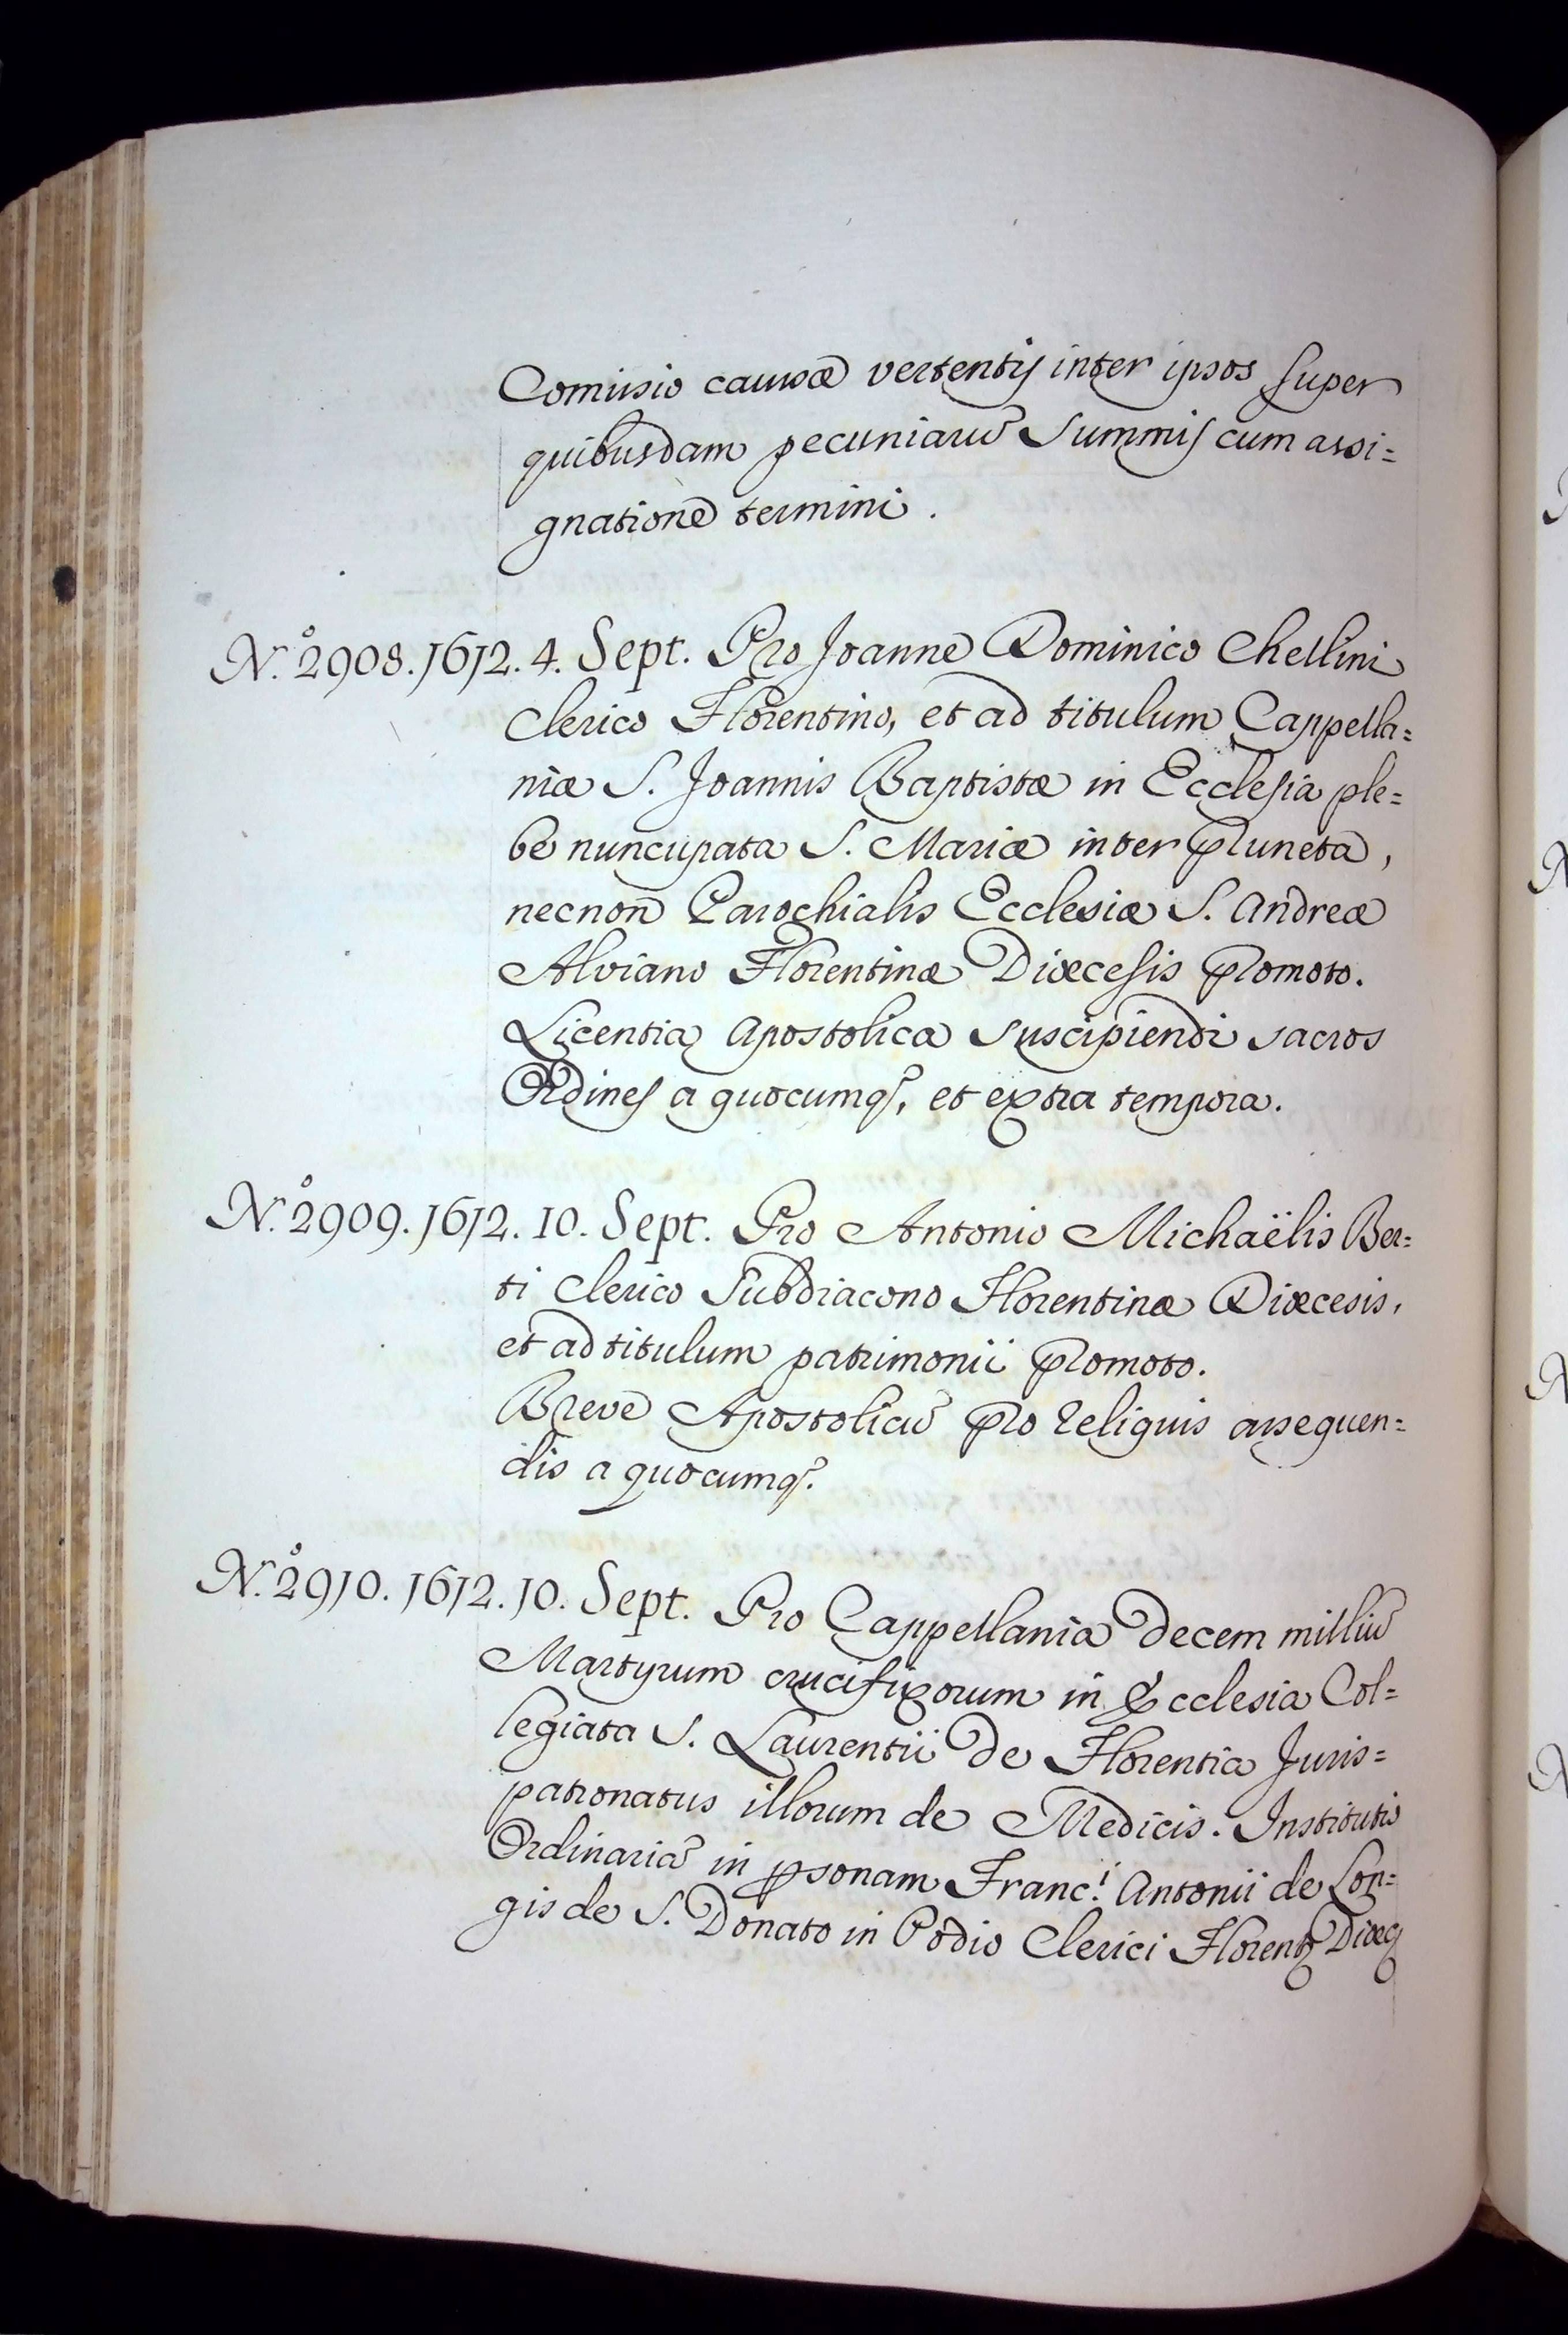 Comissio causæ vertentis inter ipsos super
quibusdam pecuniarū Summis cum assi=
gnatione termini.
N.º 2908. 1612. 4. Sept. Pro Joanne Dominico Chellini
Clerico Florentino, et ad titulum Cappella=
niæ S. Joannis Baptistæ in Ecclesia ple=
be nuncupata S. Mariæ inter Pluneta,
necnon Parochialis Ecclesiæ S. Andreæ
Alviano Florentinæ Diœcesis Promoto.
Licentia Apostolica suscipiendi sacros
Ordines a quocumq3, et extra tempora.
N.º 2909. 1612. 10. Sept. Pro Antonio Michaëlis Ber=
ti Clerico Subdiacono Florentinæ Diœcesis,
et ad titulum patrimonii Promoto.
Breve Apostolicū Pro Reliquis assequen=
dis a quocumq3.
N.º 2910. 1612. 10. Sept. Pro Cappellania decem milliū
Martyrum crucifixorum in Ecclesia Col=
legiata S. Laurentii de Florentia Juris=
patronatus illorum de Medicis. Institutio
Ordinaria in psonam Franc.i Antonii de Lon=
gis de S. Donato in Podio Clerici Florent. Diœc.